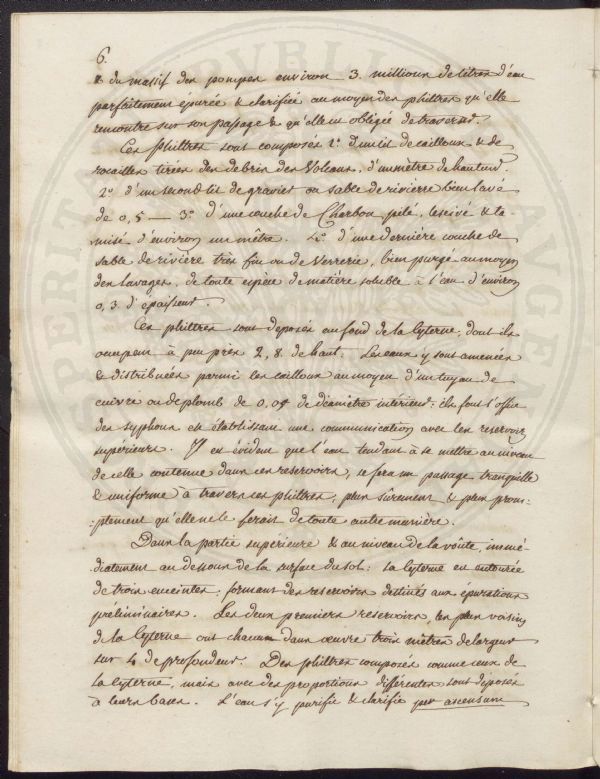 6.
& du massif des pompes environ 3. millions de litres d'eau
parfaitement épurée & clarifiée au moyen des philtres qu'elle
rencontre sur son passage & qu'elle est obligée de traverser.
Ces philtres sont composés 1.° d'un lit de cailloux & de
rocailles tirées des debris des Volcans, d'un mètre de hauteur.
2.° d'un second lit de gravier ou sable de rivierre bien lavé
de 0,5 — 3.° d'une couche de Charbon pilé, lescivé & ta-
misé d'environ un mètre. 4.° d'une dernière couche de
sable de rivière très fin ou de Verrerie, bien purgé au moyen
des lavages, de toute espèce de matière soluble à l'eau d'environ
0,3. d'épaisseur.
Ces philtres sont deposés au fond de la Cyterne, dont ils
occupent à peu près 2,8. de haut. Les eaux y sont amenées
& distribuées parmi les cailloux au moyen d'un tuyau de
cuivre ou de plomb de 0,08 de diamètre intérieur: ils font l'office
des syphons en établissant une communication avec les reservoirs
supérieurs. Il est évident que l'eau tendant à se mettre au niveau
de celle contenue dans ces reservoirs, se fera un passage tranquille
& uniforme à travers ces philtres, plus sûrement & plus prom-
:ptement qu'elle ne le ferait de toute autre manière.
Dans la partie supérieure & au niveau de la voûte, immé-
diatement au dessous de la surface du sol: la Cyterne est entourée
de trois enceintes, formant des reservoirs destinés aux épurations
préliminaires. Les deux premiers reservoirs, les plus voisins
de la Cyterne ont chacun dans œuvre trois mètres de largeur
sur 4 de profondeur. Des philtres composés comme ceux de
la Cyterne, mais avec des proportions différentes sont deposés
à leurs bases. L'eau s'y purifie & clarifie per ascensum
PVBLI
SPERITA
AVGEN